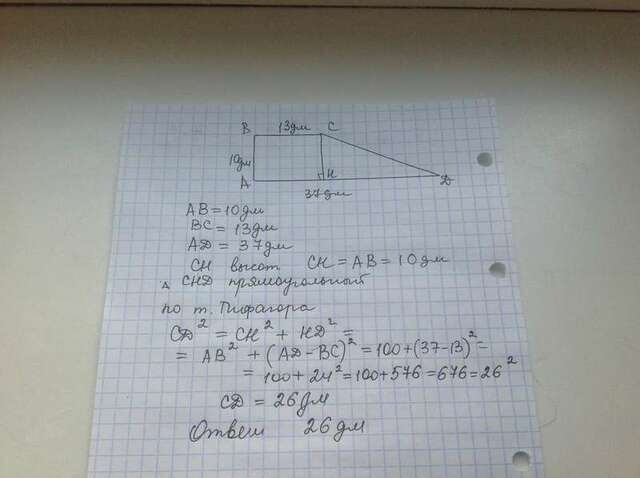 B 13дм C
10дм
A H D
37дм
AB = 10дм
BC = 13дм
AD = 37дм
CH высот CH = AB = 10дм
Δ CHD прямоугольный
по т. Пифагора
CD² = CH² + HD² =
= AB² + (AD - BC)² = 100 + (37-13)² =
= 100 + 24² = 100 + 576 = 676 = 26²
CD = 26дм
Ответ 26 дм